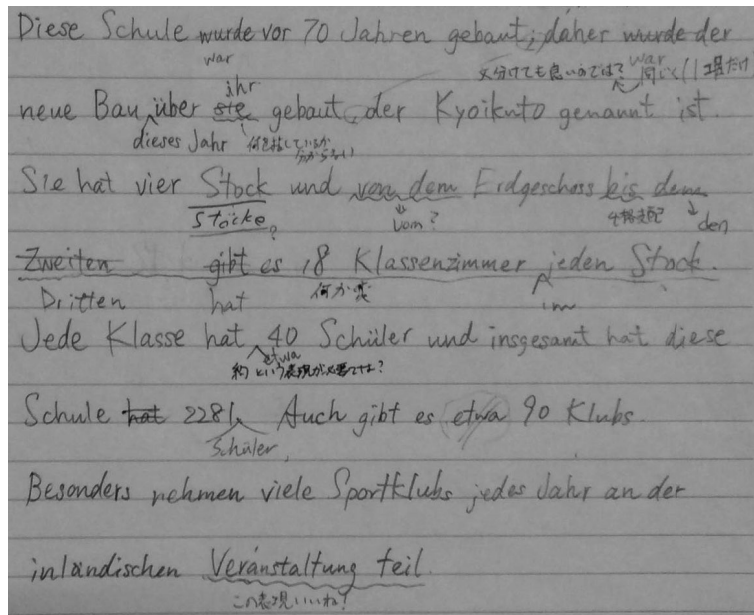 Diese Schule wurde vor 70 Jahren gebaut, daher wurde der
war
文分けても良いのでは?
war
同じく
neue Bau über sie gebaut, der Kyoikuto genannt ist.
ihr
dieses Jahr
何を指しているか
分からない
Sie hat vier Stock und von dem Erdgeschoss bis dem
Stöcke?
vom?
4格支配
den
Zweiten gibt es 18 Klassenzimmer jeden Stock.
Dritten
hat
何か変
im
Jede Klasse hat 40 Schüler und insgesamt hat diese
etwa
約という表現が必要では?
Schule hat 2281. Auch gibt es etwa 90 Klubs.
Schüler
Besonders nehmen viele Sportklubs jedes Jahr an der
inländischen Veranstaltung teil.
この表現いいね!